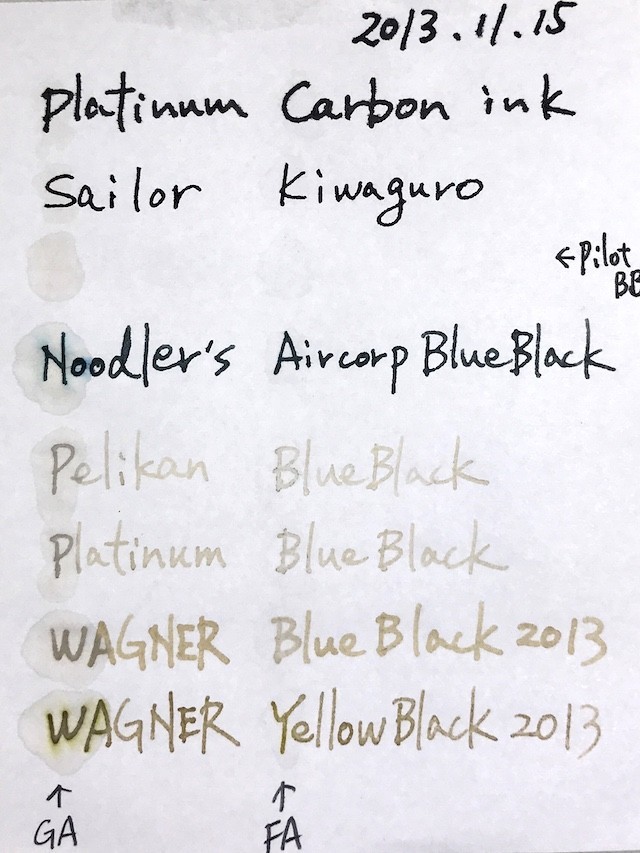 2013.11.15
Platinum Carbon ink
Sailor Kiwaguro
←Pilot
BB
Noodler's Aircorp BlueBlack
Pelikan BlueBlack
Platinum Blue Black
WAGNER Blue Black 2013
WAGNER YellowBlack 2013
↑ ↑
GA FA